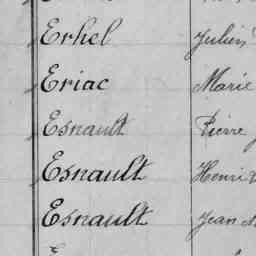 Erhel Julien
Eriac Marie
Esnault Pierre
Esnault Henri
Esnault Jean